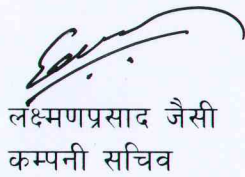 लक्ष्मणप्रसाद जैसी
कम्पनी सचिव